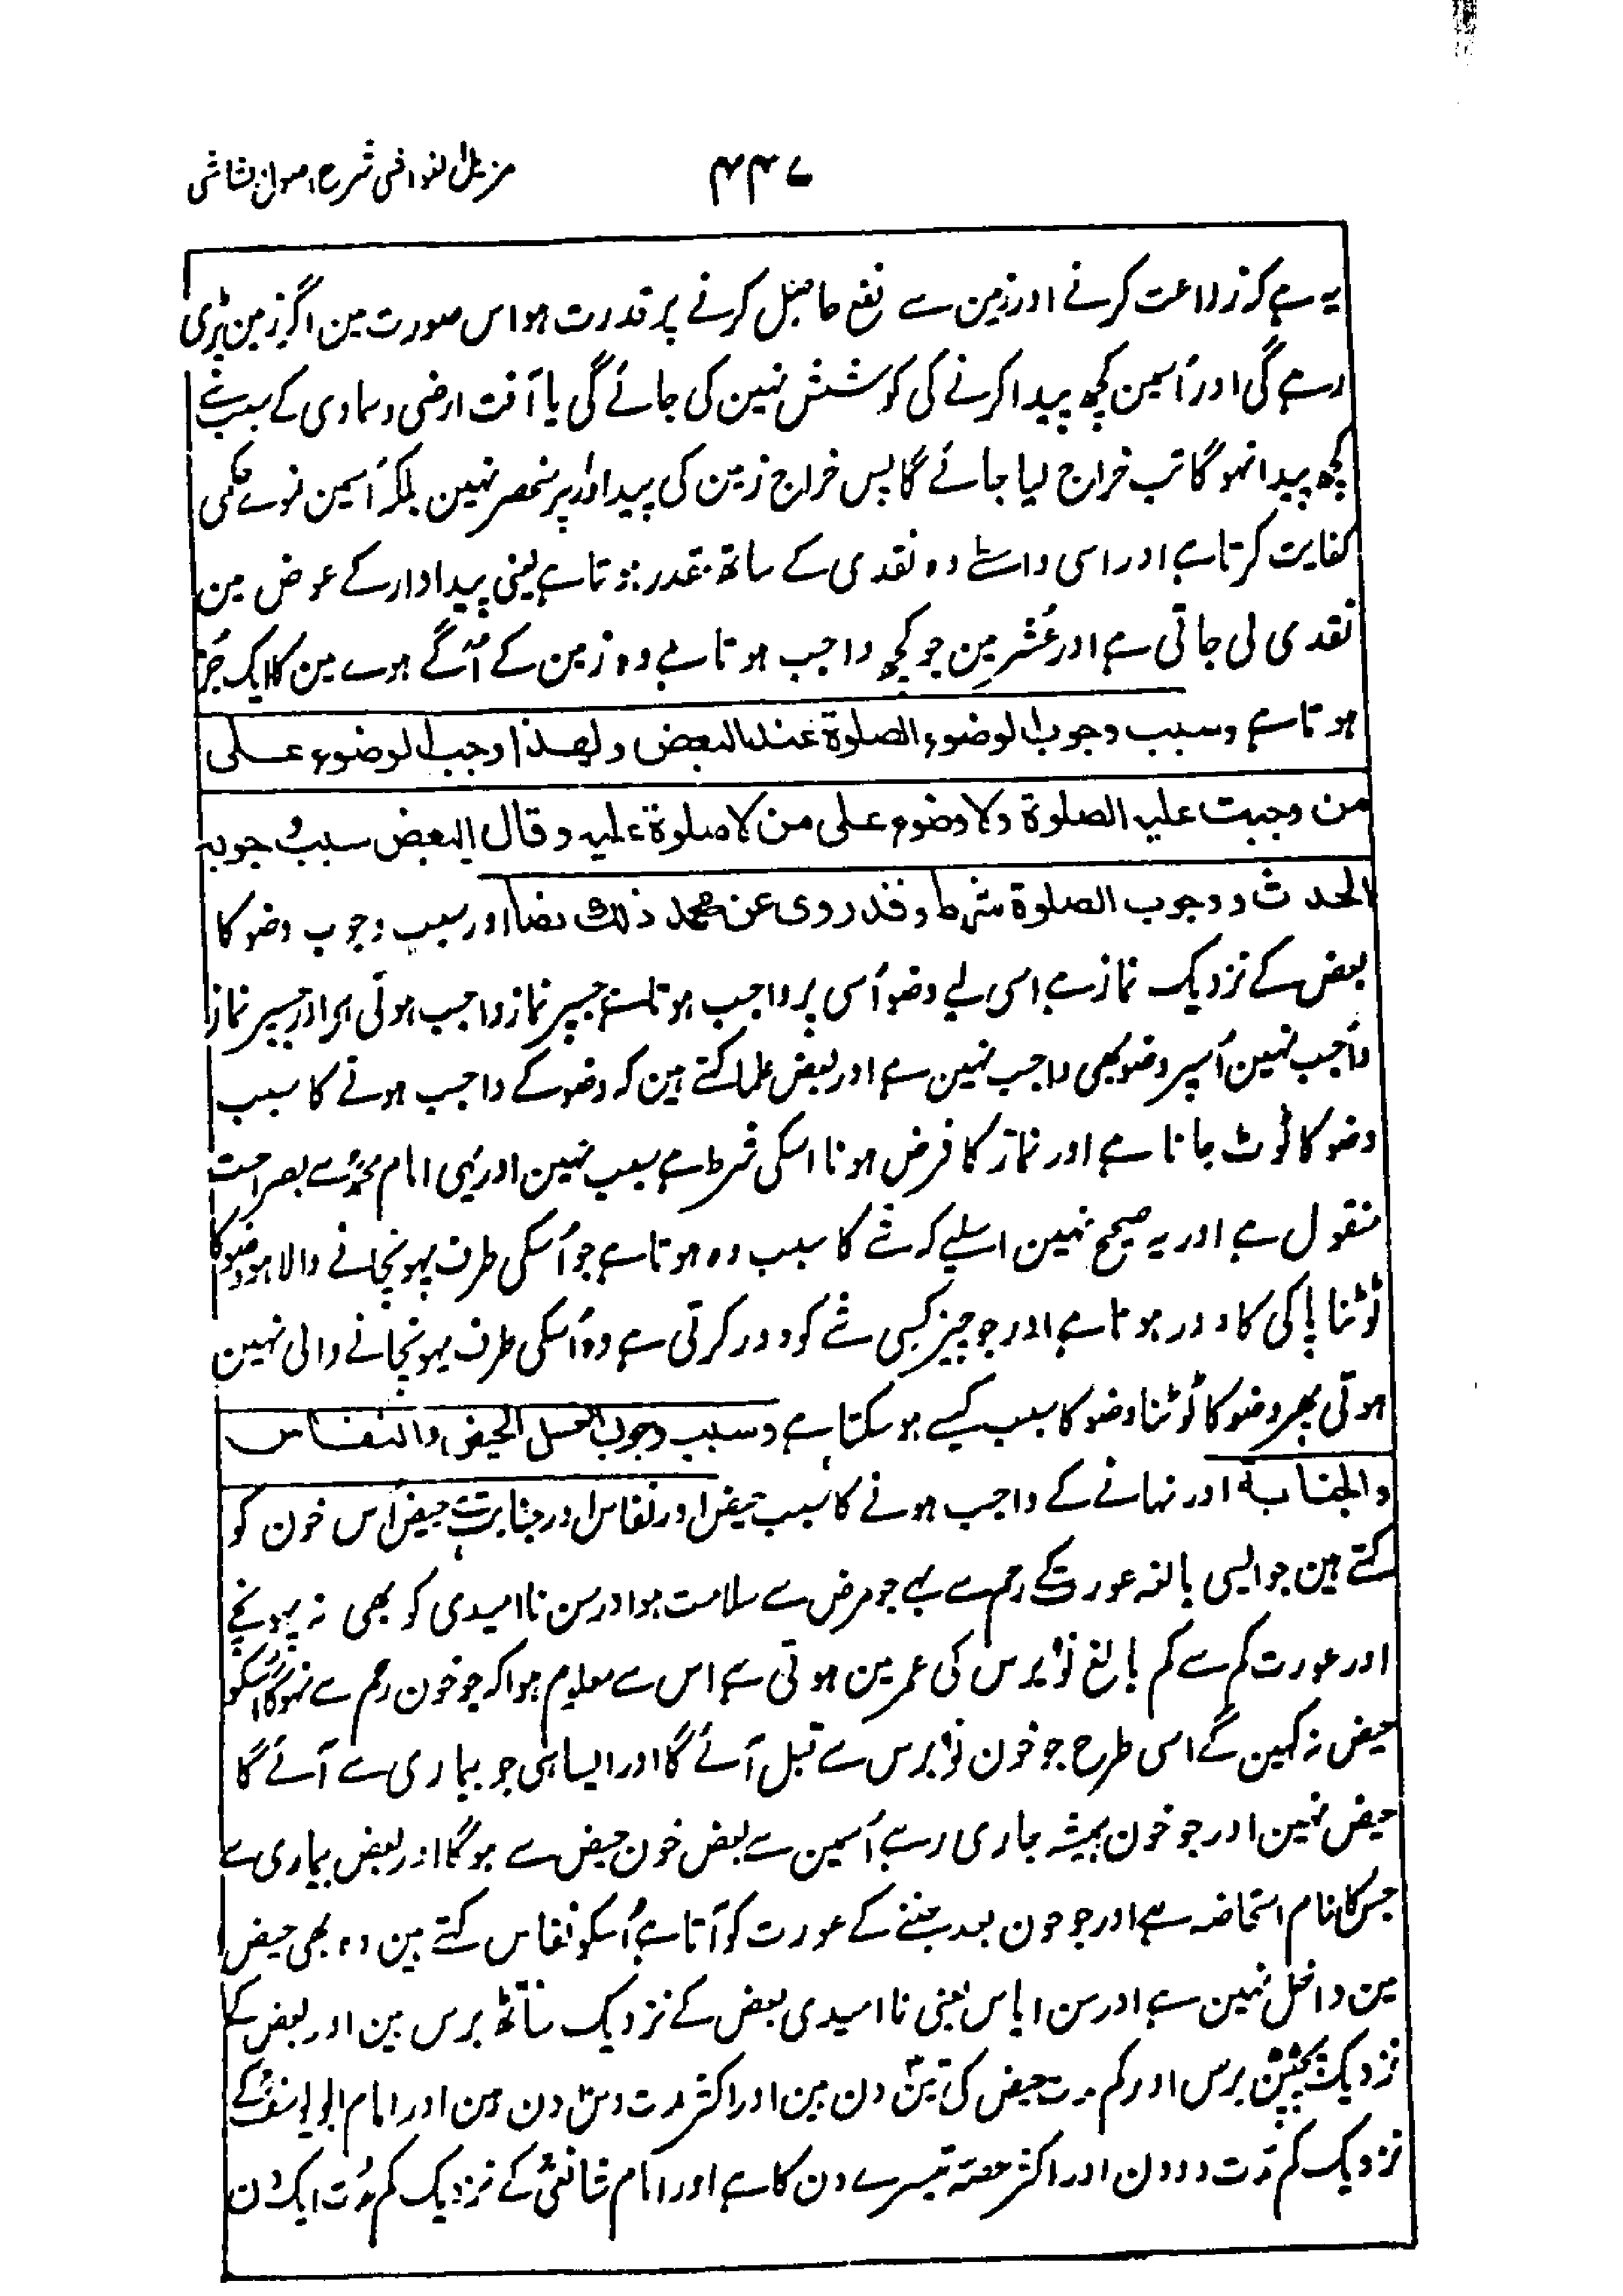 ۴۴۷
مزیل الغواشی شرح اصول الشاشی
یہ ہے کہ زراعت کرنے اور زمین سے نفع حاصل کرنے پر قدرت ہو اس صورت مین اگر زمین پڑی
رہے گی اور اُسمین کچھ پیدا کرنے کی کوشش نہین کی جائے گی یا آفت ارضی و سماوی کے سبب سے
کچھ پیدا نہوگا تب خراج لیا جائے گا پس خراج زمین کی پیداوار پر منحصر نہین بلکہ اُسمین نموے حکمی
کفایت کرتا ہے اور اسی واسطے وہ نقدی کے ساتھ مقدر ہوتا ہے یعنی پیداوار کے عوض مین
نقدی لی جاتی ہے اور عُشر مین جو کچھ واجب ہوتا ہے وہ زمین کے اُگے ہوے مین کا ایک جز
ہوتا ہے وسبب وجوب الوضوء الصلوة عند البعض ولهذا وجب الوضوء على
من وجبت عليه الصلوة ولا وضوء على من لا صلوة عليه وقال البعض سبب وجوبه
الحدث ووجوب الصلوة شرط وقد روى عن محمد ذلك نصا اور سبب وجوب وضو کا
بعض کے نزدیک نماز ہے اسی لیے وضو اُسی پر واجب ہوتا ہے جسپر نماز واجب ہوئی ہو اور جسپر نماز
واجب نہین اُسپر وضو بھی واجب نہین ہے اور بعض علما کہتے ہین کہ وضو کے واجب ہونے کا سبب
وضو کا ٹوٹ جانا ہے اور نماز کا فرض ہونا اسکی شرط ہے سبب نہین اور یہی امام محمدؒ سے بصراحت
منقول ہے اور یہ صحیح نہین اسلیے کہ شے کا سبب وہ ہوتا ہے جو اُسکی طرف پہونچانے والا ہو وضو کا
ٹوٹنا پاکی کا دور ہونا ہے اور جو چیز کسی شے کو دور کرتی ہے وہ اُسکی طرف پہونچانے والی نہین
ہوتی پھر وضو کا ٹوٹنا وضو کا سبب کیسے ہو سکتا ہے وسبب وجوب الغسل الحيض والنفاس
والجنابة اور نہانے کے واجب ہونے کا سبب حیض اور نفاس اور جنابت ہے حیض اُس خون کو
کہتے ہین جو ایسی بالغہ عورت کے رحم سے بہے جو مرض سے سلامت ہو اور سن ناامیدی کو بھی نہ پہونچے
اور عورت کم سے کم بالغ نو برس کی عمر مین ہوتی ہے اس سے معلوم ہوا کہ جو خون رحم سے نہوگا اُسکو
حیض نہ کہین گے اسی طرح جو خون نو برس سے قبل آئے گا اور ایسا ہی جو بیماری سے آئے گا
حیض نہین اور جو خون ہمیشہ جاری رہے اُسمین سے بعض خون حیض سے ہوگا اور بعض بیماری سے
جس کا نام استحاضہ ہے اور جو خون بعد جننے کے عورت کو آتا ہے اُسکو نفاس کہتے ہین وہ بھی حیض
مین داخل نہین ہے اور سن ایاس یعنی ناامیدی بعض کے نزدیک ساٹھ برس ہین اور بعض کے
نزدیک پچپن برس اور کم مدت حیض کی تین دن ہین اور اکثر مدت دس دن ہین اور امام ابو یوسفؒ کے
نزدیک کم مدت دو دن اور اکثر حصہ تیسرے دن کا ہے اور امام شافعیؒ کے نزدیک کم مُدت ایک دن